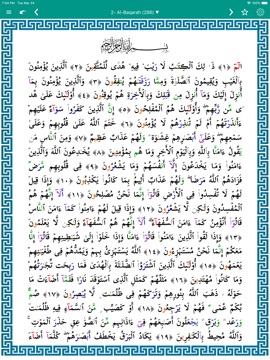 2- Al-Baqarah (286)
بِسْمِ ٱللَّهِ ٱلرَّحْمَٰنِ ٱلرَّحِيمِ
الٓمٓ ﴿١﴾ ذَٰلِكَ ٱلْكِتَٰبُ لَا رَيْبَ فِيهِ هُدًى لِّلْمُتَّقِينَ ﴿٢﴾ ٱلَّذِينَ يُؤْمِنُونَ
بِٱلْغَيْبِ وَيُقِيمُونَ ٱلصَّلَوٰةَ وَمِمَّا رَزَقْنَٰهُمْ يُنفِقُونَ ﴿٣﴾ وَٱلَّذِينَ يُؤْمِنُونَ بِمَآ
أُنزِلَ إِلَيْكَ وَمَآ أُنزِلَ مِن قَبْلِكَ وَبِٱلْءَاخِرَةِ هُمْ يُوقِنُونَ ﴿٤﴾ أُو۟لَٰٓئِكَ عَلَىٰ هُدًى
مِّن رَّبِّهِمْ وَأُو۟لَٰٓئِكَ هُمُ ٱلْمُفْلِحُونَ ﴿٥﴾ إِنَّ ٱلَّذِينَ كَفَرُوا۟ سَوَآءٌ عَلَيْهِمْ
ءَأَنذَرْتَهُمْ أَمْ لَمْ تُنذِرْهُمْ لَا يُؤْمِنُونَ ﴿٦﴾ خَتَمَ ٱللَّهُ عَلَىٰ قُلُوبِهِمْ وَعَلَىٰ
سَمْعِهِمْ وَعَلَىٰٓ أَبْصَٰرِهِمْ غِشَٰوَةٌ وَلَهُمْ عَذَابٌ عَظِيمٌ ﴿٧﴾ وَمِنَ ٱلنَّاسِ مَن
يَقُولُ ءَامَنَّا بِٱللَّهِ وَبِٱلْيَوْمِ ٱلْءَاخِرِ وَمَا هُم بِمُؤْمِنِينَ ﴿٨﴾ يُخَٰدِعُونَ ٱللَّهَ وَٱلَّذِينَ
ءَامَنُوا۟ وَمَا يَخْدَعُونَ إِلَّآ أَنفُسَهُمْ وَمَا يَشْعُرُونَ ﴿٩﴾ فِى قُلُوبِهِم مَّرَضٌ
فَزَادَهُمُ ٱللَّهُ مَرَضًا وَلَهُمْ عَذَابٌ أَلِيمٌۢ بِمَا كَانُوا۟ يَكْذِبُونَ ﴿١٠﴾ وَإِذَا قِيلَ
لَهُمْ لَا تُفْسِدُوا۟ فِى ٱلْأَرْضِ قَالُوٓا۟ إِنَّمَا نَحْنُ مُصْلِحُونَ ﴿١١﴾ أَلَآ إِنَّهُمْ هُمُ
ٱلْمُفْسِدُونَ وَلَٰكِن لَّا يَشْعُرُونَ ﴿١٢﴾ وَإِذَا قِيلَ لَهُمْ ءَامِنُوا۟ كَمَآ ءَامَنَ ٱلنَّاسُ
قَالُوٓا۟ أَنُؤْمِنُ كَمَآ ءَامَنَ ٱلسُّفَهَآءُ أَلَآ إِنَّهُمْ هُمُ ٱلسُّفَهَآءُ وَلَٰكِن لَّا يَعْلَمُونَ
﴿١٣﴾ وَإِذَا لَقُوا۟ ٱلَّذِينَ ءَامَنُوا۟ قَالُوٓا۟ ءَامَنَّا وَإِذَا خَلَوْا۟ إِلَىٰ شَيَٰطِينِهِمْ قَالُوٓا۟ إِنَّا
مَعَكُمْ إِنَّمَا نَحْنُ مُسْتَهْزِءُونَ ﴿١٤﴾ ٱللَّهُ يَسْتَهْزِئُ بِهِمْ وَيَمُدُّهُمْ فِى طُغْيَٰنِهِمْ
يَعْمَهُونَ ﴿١٥﴾ أُو۟لَٰٓئِكَ ٱلَّذِينَ ٱشْتَرَوُا۟ ٱلضَّلَٰلَةَ بِٱلْهُدَىٰ فَمَا رَبِحَت تِّجَٰرَتُهُمْ
وَمَا كَانُوا۟ مُهْتَدِينَ ﴿١٦﴾ مَثَلُهُمْ كَمَثَلِ ٱلَّذِى ٱسْتَوْقَدَ نَارًا فَلَمَّآ أَضَآءَتْ مَا
حَوْلَهُۥ ذَهَبَ ٱللَّهُ بِنُورِهِمْ وَتَرَكَهُمْ فِى ظُلُمَٰتٍ لَّا يُبْصِرُونَ ﴿١٧﴾ صُمٌّۢ
بُكْمٌ عُمْىٌ فَهُمْ لَا يَرْجِعُونَ ﴿١٨﴾ أَوْ كَصَيِّبٍ مِّنَ ٱلسَّمَآءِ فِيهِ ظُلُمَٰتٌ
وَرَعْدٌ وَبَرْقٌ يَجْعَلُونَ أَصَٰبِعَهُمْ فِىٓ ءَاذَانِهِم مِّنَ ٱلصَّوَٰعِقِ حَذَرَ ٱلْمَوْتِ
وَٱللَّهُ مُحِيطٌۢ بِٱلْكَٰفِرِينَ ﴿١٩﴾ يَكَادُ ٱلْبَرْقُ يَخْطَفُ أَبْصَٰرَهُمْ كُلَّمَآ أَضَآءَ